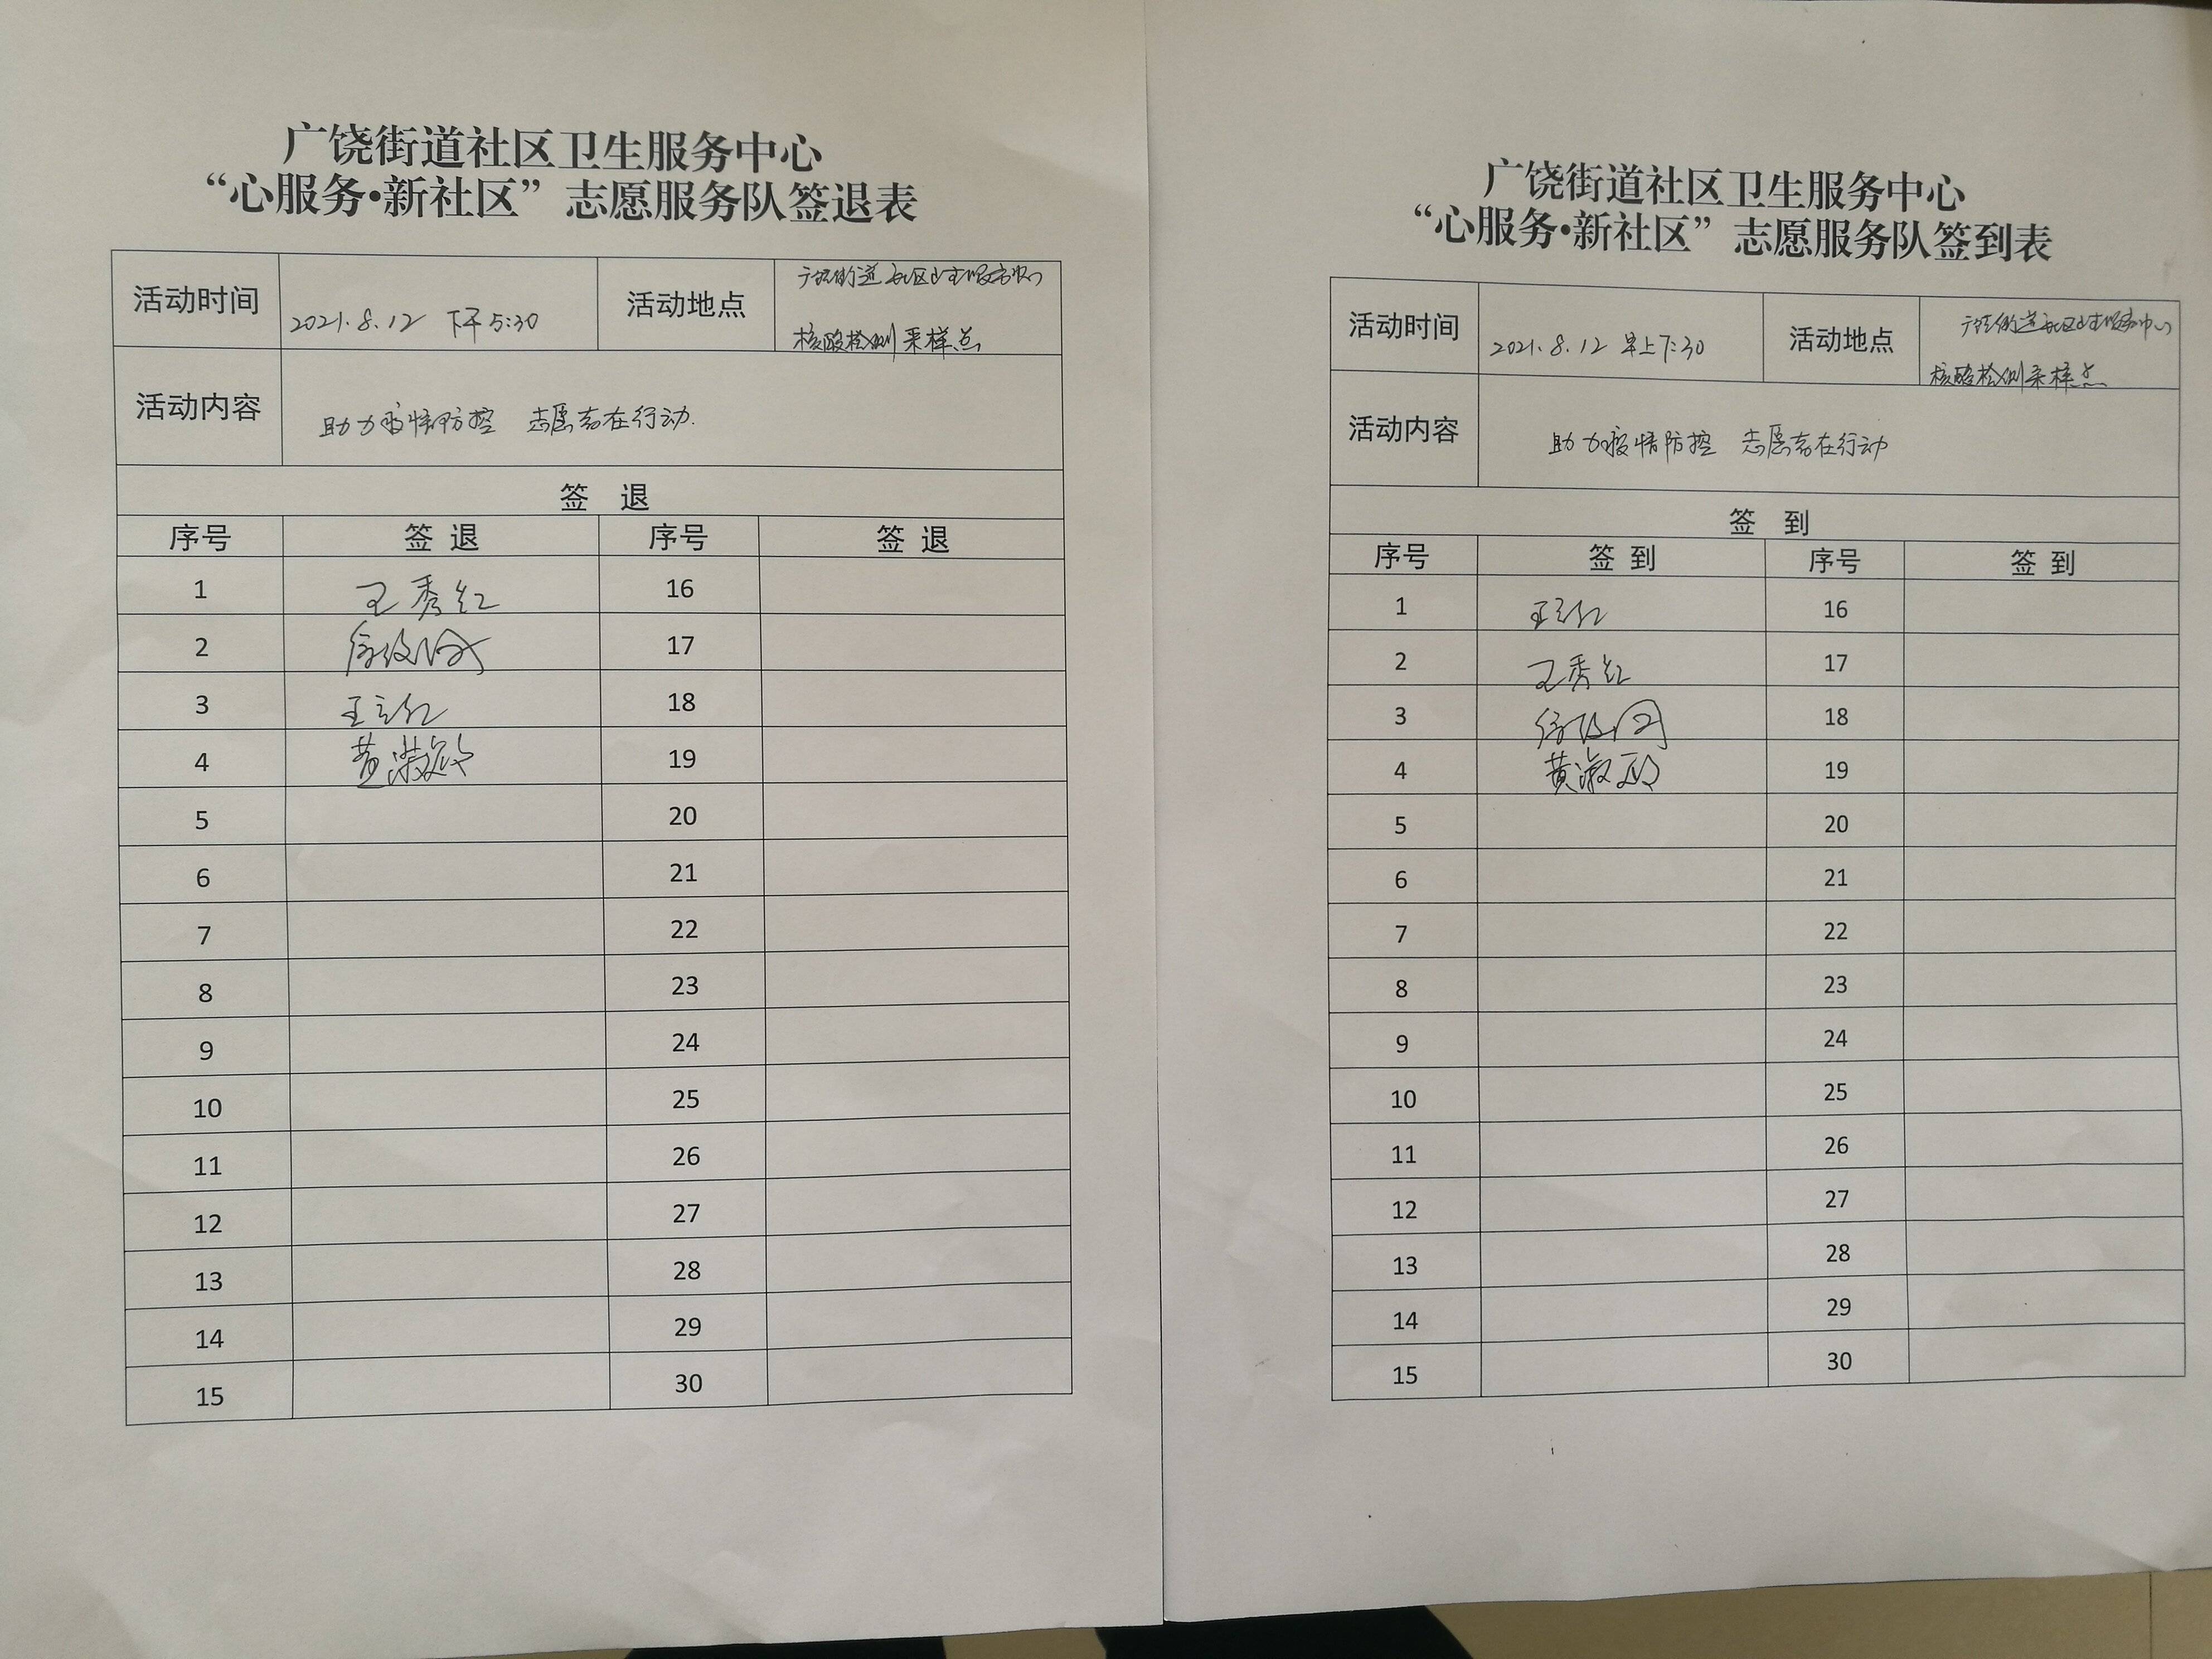 广饶街道社区卫生服务中心
“心服务•新社区”志愿服务队签退表
活动时间 2021.8.12 下午5:30 活动地点 广饶街道社区卫生服务中心
核酸检测采样点
活动内容 助力疫情防控 志愿者在行动.
签 退
序号 签 退 序号 签 退
1 王秀红 16
2 17
3 王立红 18
4 黄淑 19
5 20
6 21
7 22
8 23
9 24
10 25
11 26
12 27
13 28
14 29
15 30
广饶街道社区卫生服务中心
“心服务•新社区”志愿服务队签到表
活动时间 2021.8.12 早上7:30 活动地点 广饶街道社区卫生服务中心
核酸检测采样点
活动内容 助力疫情防控 志愿者在行动
签 到
序号 签 到 序号 签 到
1 王立红 16
2 王秀红 17
3 18
4 黄淑 19
5 20
6 21
7 22
8 23
9 24
10 25
11 26
12 27
13 28
14 29
15 30